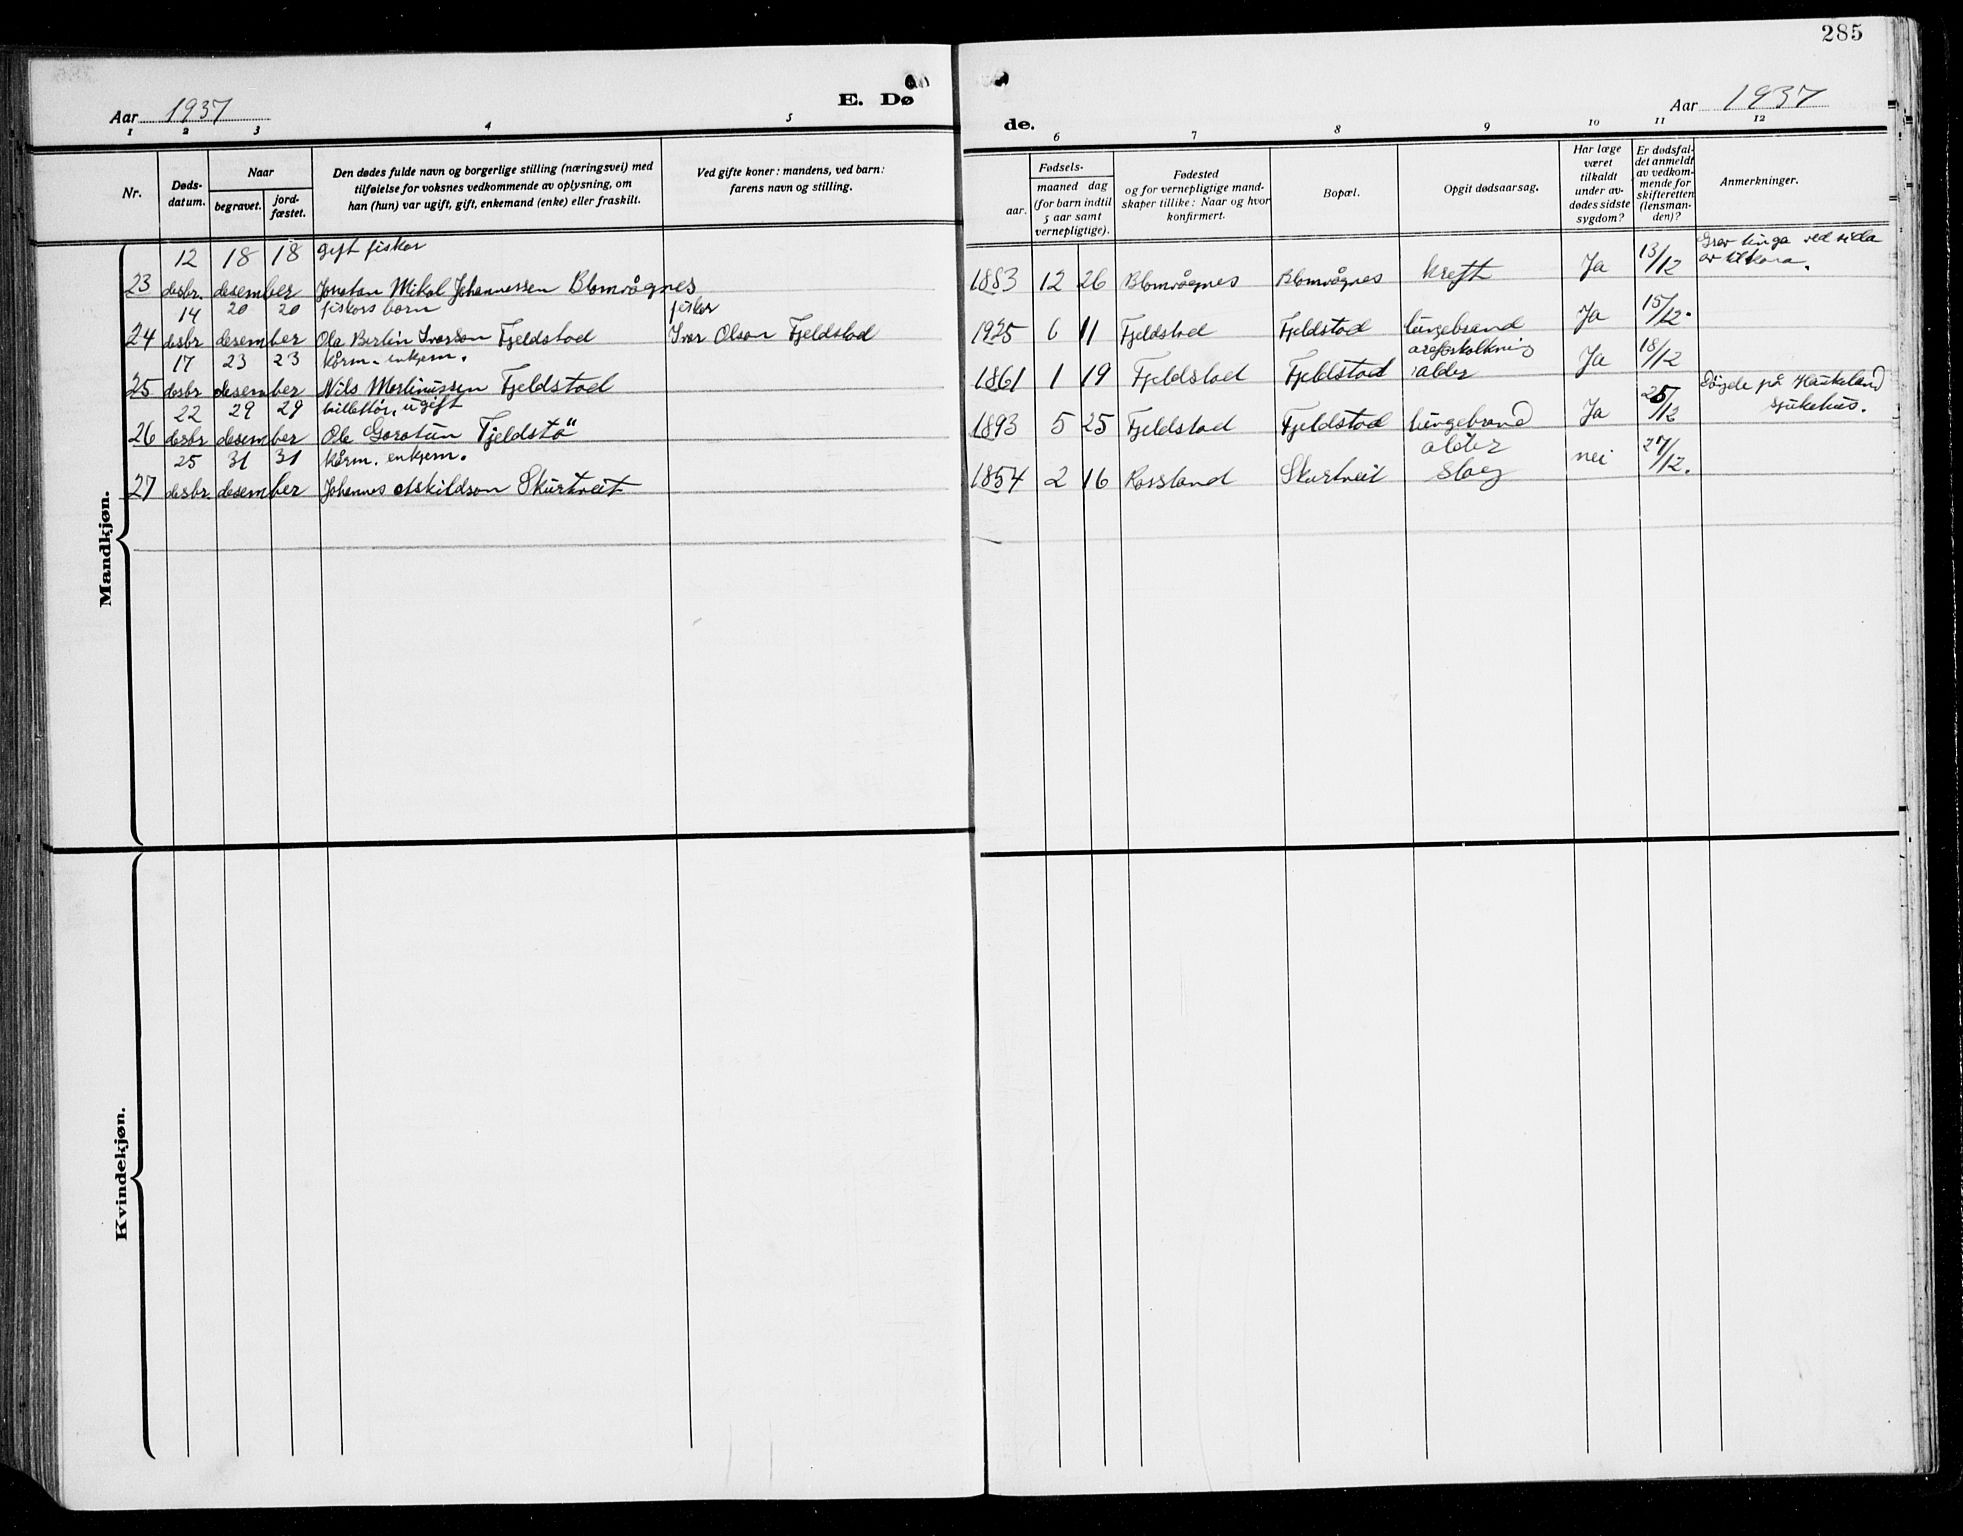 285
Aar 1937
E. Dø
de.
Aar 1937
1 2 3 4 5 6 7 8 9 10 11 12
Nr.
Døds-
datum.
Naar
begravet.
jord-
fæstet.
Den dødes fulde navn og borgerlige stilling (næringsvei) med
tilføielse for voksnes vedkommende av oplysning, om
han (hun) var ugift, gift, enkemand (enke) eller fraskilt.
Ved gifte koner: mandens, ved barn:
farens navn og stilling.
Fødsels-
aar.
maaned dag
(for barn indtil
5 aar samt
vernepligtige).
Fødested
og for vernepligtige mand-
skaper tillike: Naar og hvor
konfirmert.
Bopæl.
Opgit dødsaarsag.
Har læge
været
tilkaldt
under av-
dødes sidste
sygdom?
Er dødsfal-
det anmeldt
av vedkom-
mende for
skifteretten
(lensman-
den)?
Anmerkninger.
Mandkjøn.
12 18 18 gift fisker
23 desbr. desember Jonatan Mikal Johannessen Blomvågnes 1883 12 26 Blomvågnes Blomvågnes kreft Ja 13/12 ved sida
av
14 20 20 fiskars barn fisker
24 desbr desember Ola Berlin Iverson Fjeldstad Iver Olson Fjeldstad 1925 6 11 Fjeldstad Fjeldstad lungebrand Ja 15/12.
17 23 23 kårm. enkjem. areforkalkning
25 desbr desember Nils Martinussen Fjeldstad 1861 1 19 Fjeldstad Fjeldstad alder Ja 18/12
22 29 29 ugift Döyde på Haukeland
sjukehus.
26 desbr desember Ole Fjeldstö 1893 5 25 Fjeldstad Fjeldstad lungebrand Ja 25/12
25 31 31 kårm. enkjem. alder
27 desbr. desember Johannes Askildson Skurtveit 1854 2 16 Rossland Skurtveit slag nei 27/12.
Kvindekjøn.